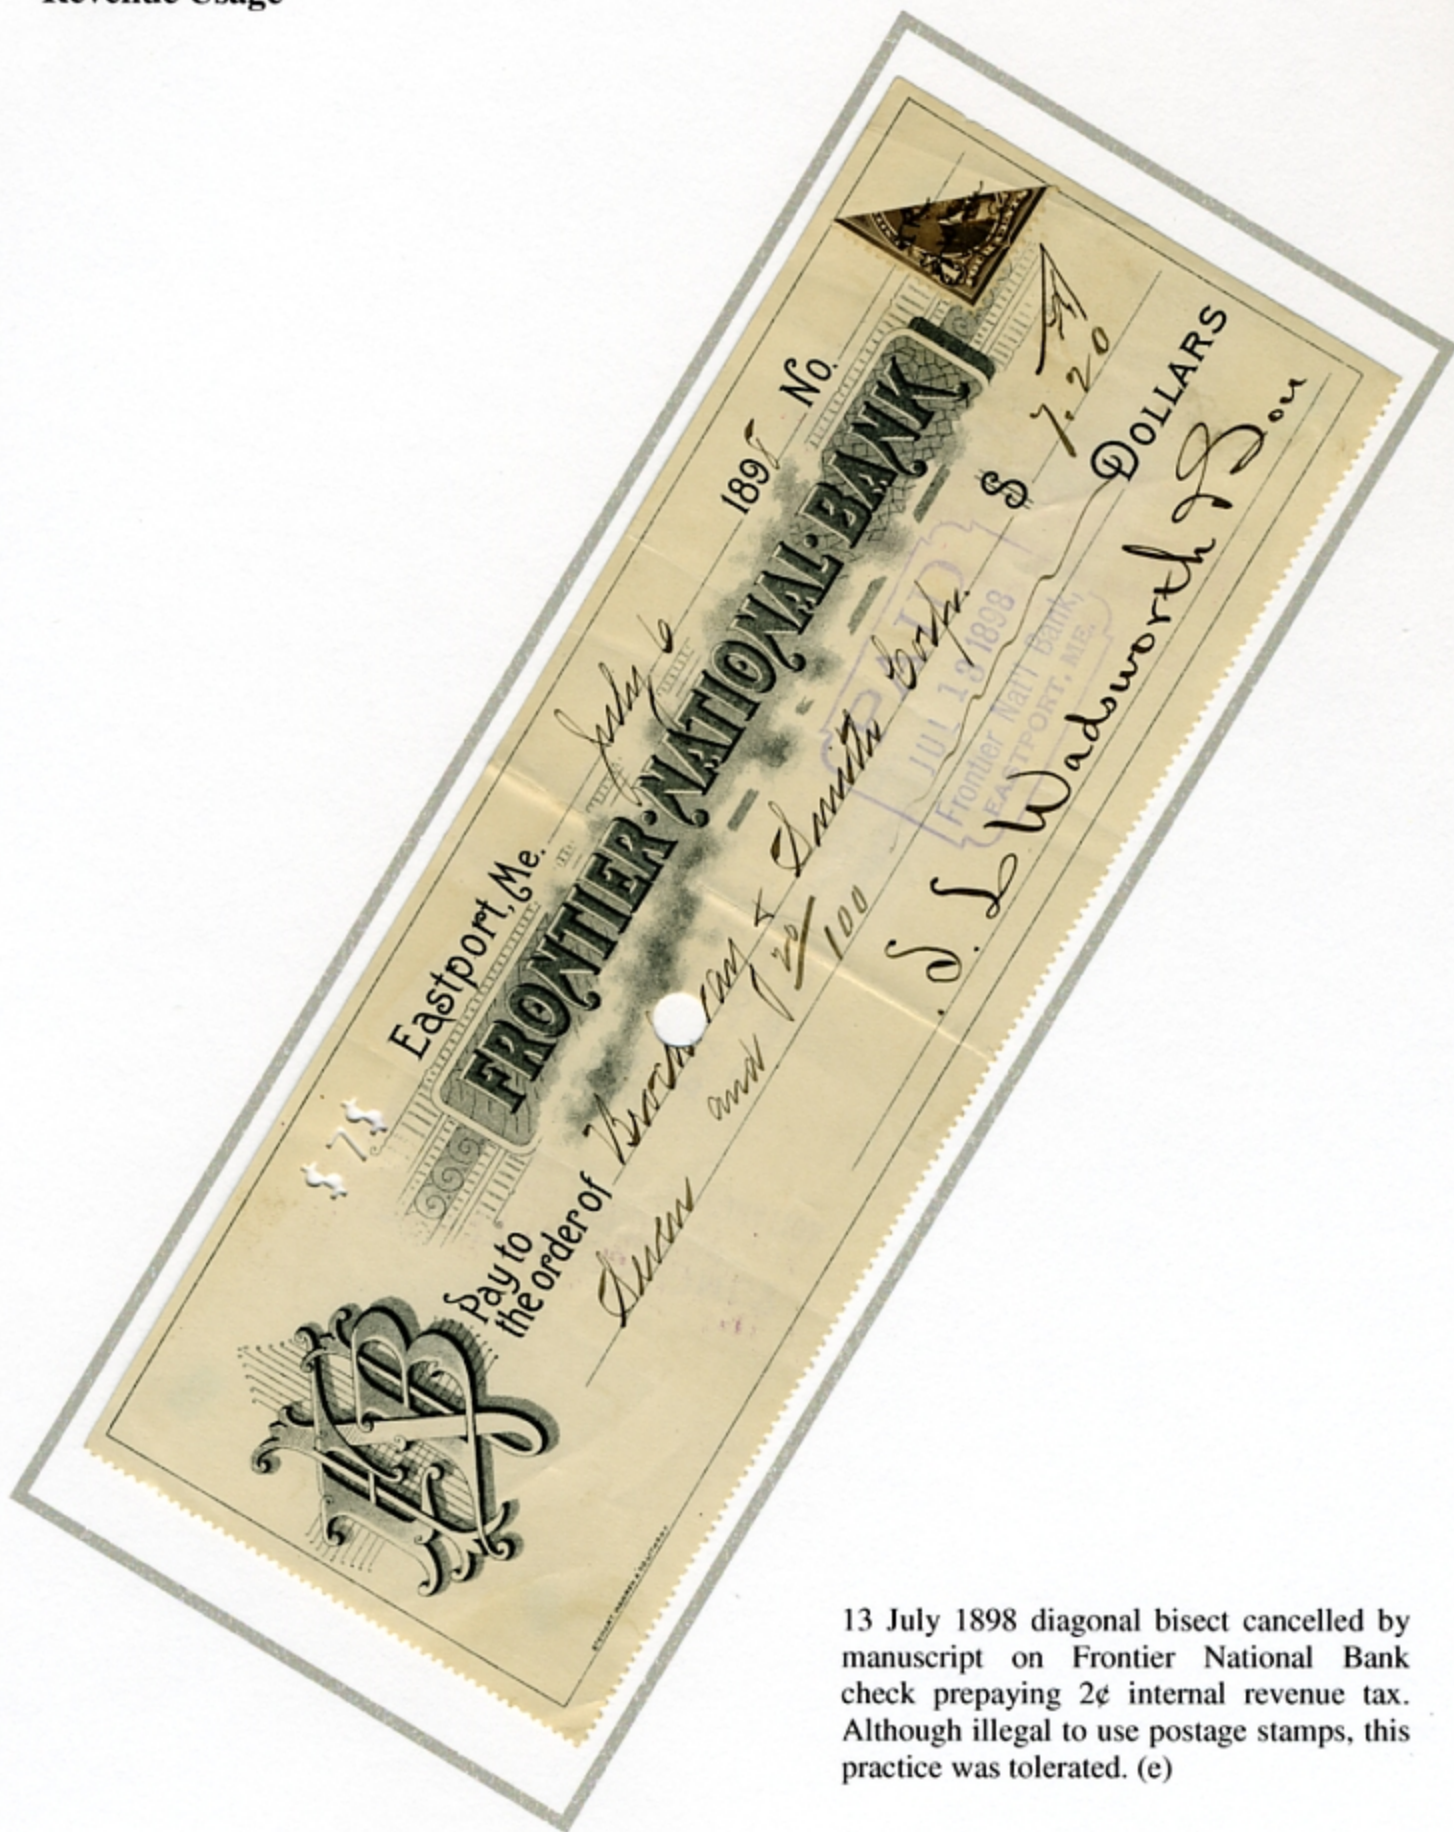 Revenue Usage
Eastport, Me. July 6 1898 No.
$ 7 $
FRONTIER·NATIONAL·BANK
Pay to
the order of Brockway & Smith Corp. $ 7.20
Seven and 20/100 DOLLARS
PAID
JUL 13 1898
Frontier Nat'l Bank,
EASTPORT, ME.
S. L Wadsworth & Son
13 July 1898 diagonal bisect cancelled by
manuscript on Frontier National Bank
check prepaying 2¢ internal revenue tax.
Although illegal to use postage stamps, this
practice was tolerated. (e)